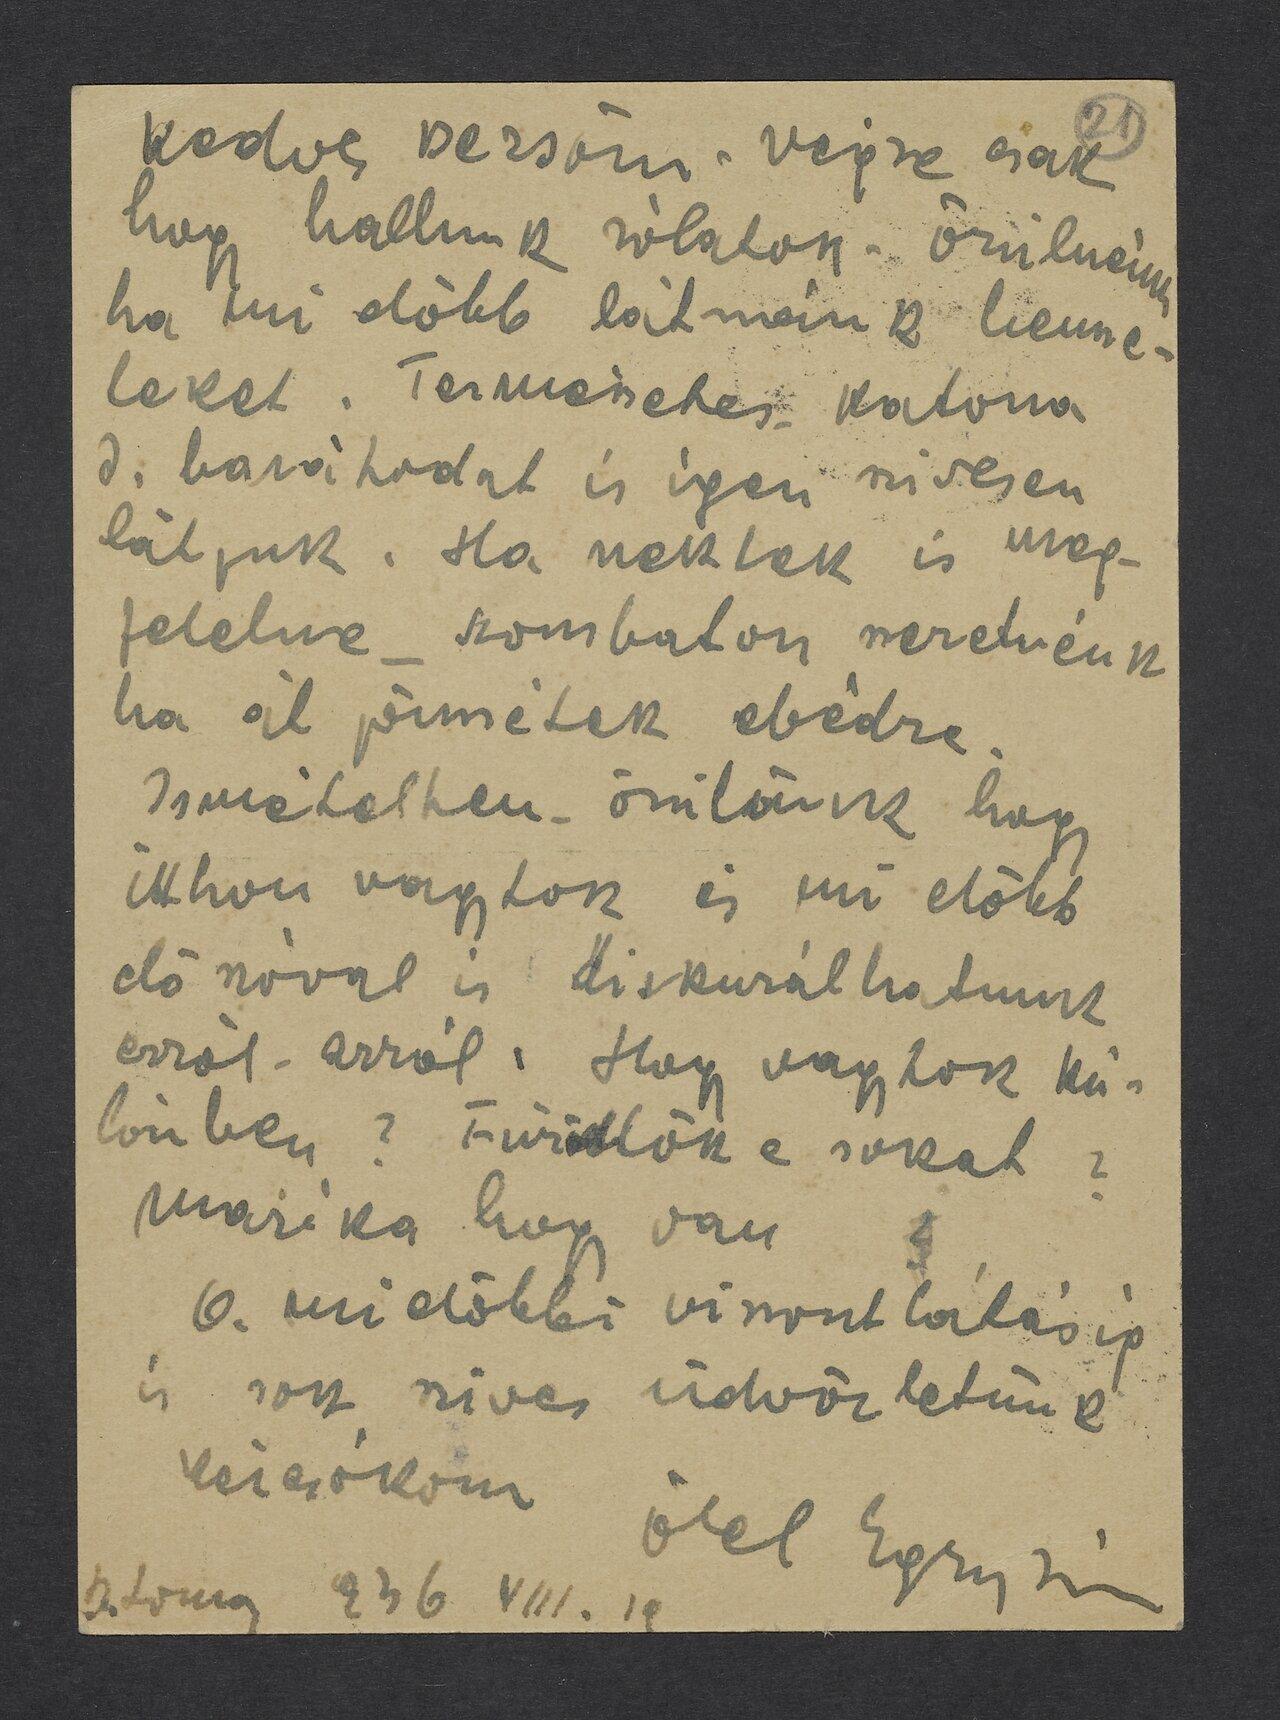 21
Kedves Dezsőm. végre csak
hogy hallunk rólatok. Örülnénk
ha mi előbb látnánk benne-
teket. Természetes_ Katona
J. barátodat is igen szivesen
látjuk. Ha nektek is meg-
felelne_ szombaton szeretnénk
ha át jönnétek ebédre.
Ismételten_ örülünk hogy
itthon vagytok és mi előbb
élő szóval is diskurálhatunk
erről-arról. Hogy vagytok kü-
lönben? Fürödtök e sokat?
Mariska hogy van ?
A. mi előbbi viszontlátásig
is sok szives üdvözletünk
kézcsókom
ölel Egry Jó
B.tomaj 936 VIII. 19